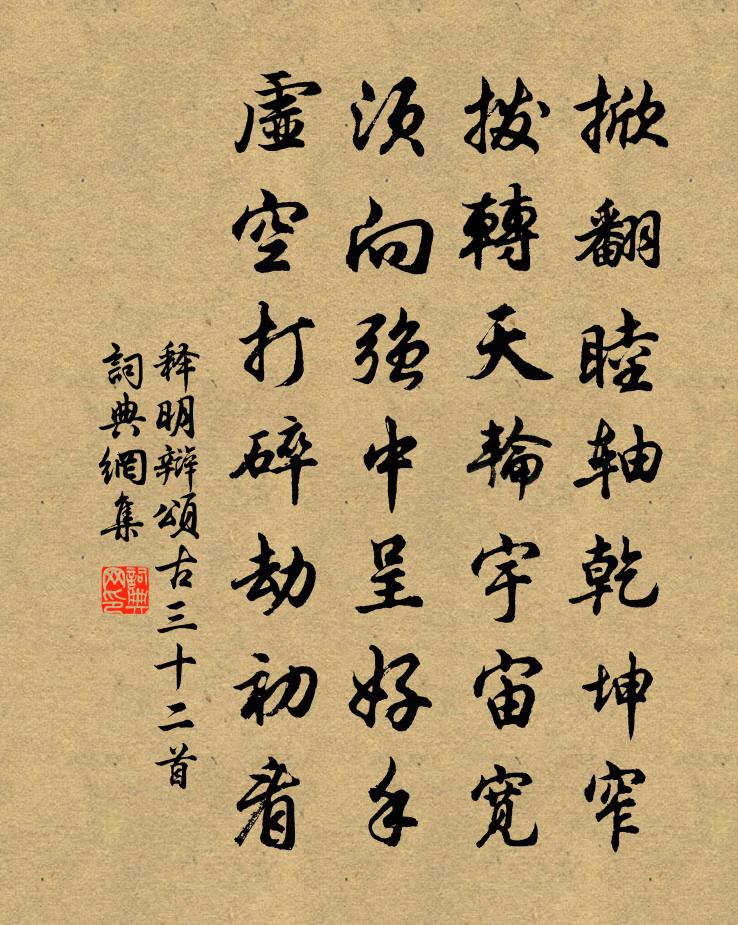 掀翻睦轴乾坤窄
拨轉天輪宇宙寬
須向強中呈好手
虛空打碎劫初看
释明辯頌古三十二首
詞典網集
詞典网印